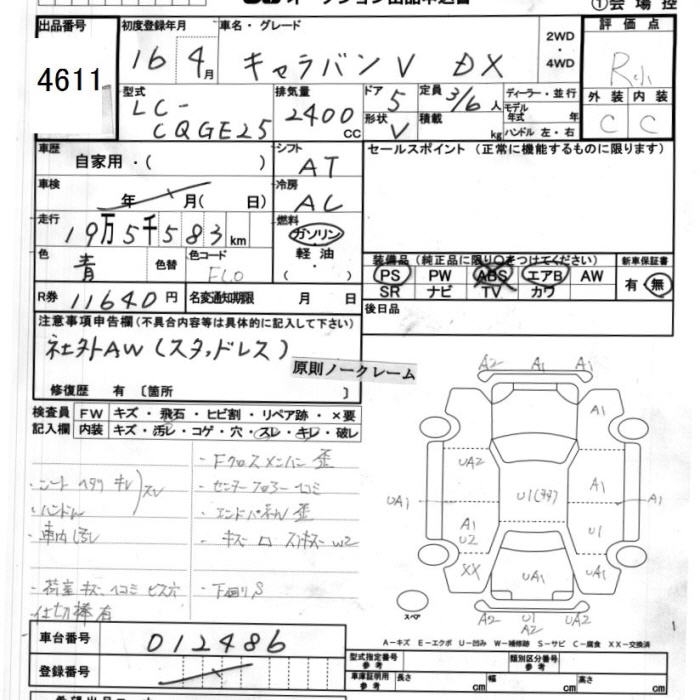 ①会場控
出品番号 初度登録年月 車名・グレード 評価点
4611
16 4月 キャラバン V DX
2WD
・
4WD
R小
型式 LC-
CQGE25
排気量 2400cc
ドア 5
形状 V
定員 3/6人
積載 kg
ディーラー・並行
モデル
年式 年
ハンドル 左・右
外装 内装
C C
車歴 自家用・( )
シフト AT
車検 年 月( 日)
冷房 AC
走行 19万5千583km
燃料 ガソリン
・
軽油
・
( )
色 青 色替 色コード
R券 11640円 名変通知期限 月 日
セールスポイント(正常に機能するものに限ります)
装備品(純正品に限り○をつけてください) 新車保証書
PS PW ABS エアB AW
SR ナビ TV カワ
有・無
後日品
注意事項申告欄(不具合内容等は具体的に記入して下さい)
社外AW(スタッドレス)
原則ノークレーム
修復歴 有〔箇所 〕
検査員
記入欄
FW キズ・飛石・ヒビ割・リペア跡・×要
内装 キズ・汚レ・コゲ・穴・スレ・キレ・破レ
・Fクロスメンバー歪
・シート ヘタリ キレ スレ
・センターフロアー ヘコミ
・ハンドル
・エンドパネル歪
・車内汚レ
・荷室キズ、ヘコミ ビス穴
・下回りS
仕切棒有
A2 A1 A1
A1
UA2
UA1
A1
A1
U1
A1
U2
XX
UA1
UA1
A2 U1 UA2
A2
スペア
A-キズ E-エクボ U-凹み W-補修跡 S-サビ C-腐食 XX-交換済
車台番号 012486
登録番号
型式指定番号
参考
類別区分番号
参考
車庫証明用
参考
長さ cm 幅 cm 高さ cm